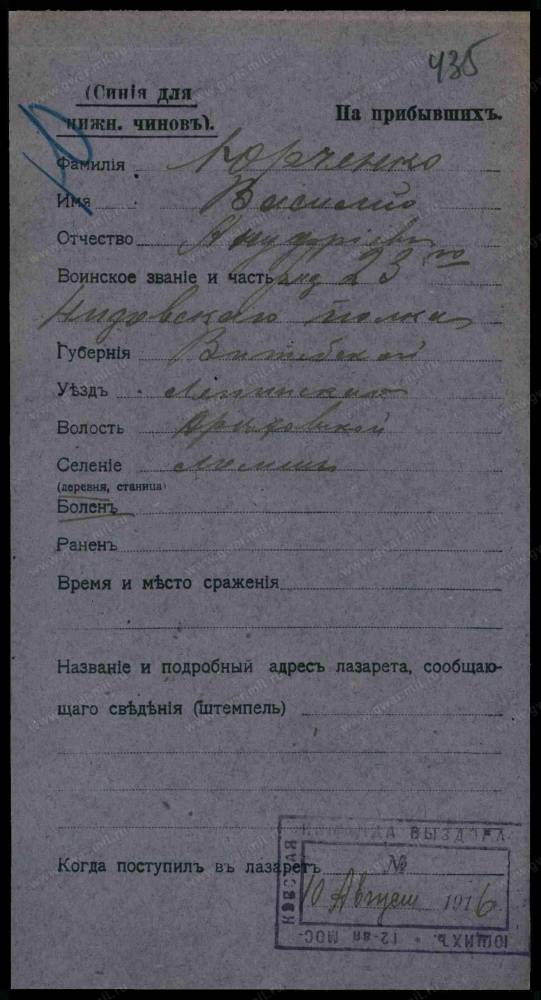 435
(Синія для
нижн. чиновъ).
На прибывшихъ.
Фамилія Юрченко
Имя Василій
Отчество
Воинское званіе и часть ряд 23го
Низовскаго полка
Губернія Витебской
Уѣздъ Лепельскаго
Волость
Селеніе
(деревня, станица)
Боленъ
Раненъ
Время и мѣсто сраженія
Названіе и подробный адресъ лазарета, сообщаю-
щаго свѣдѣнія (штемпель)
Когда поступилъ въ лазаретъ
КОМАНДА ВЫЗДОРА
№
10 Август 1916
ЮЩИХЪ. * 12-ая МОС-
КОВСКАЯ